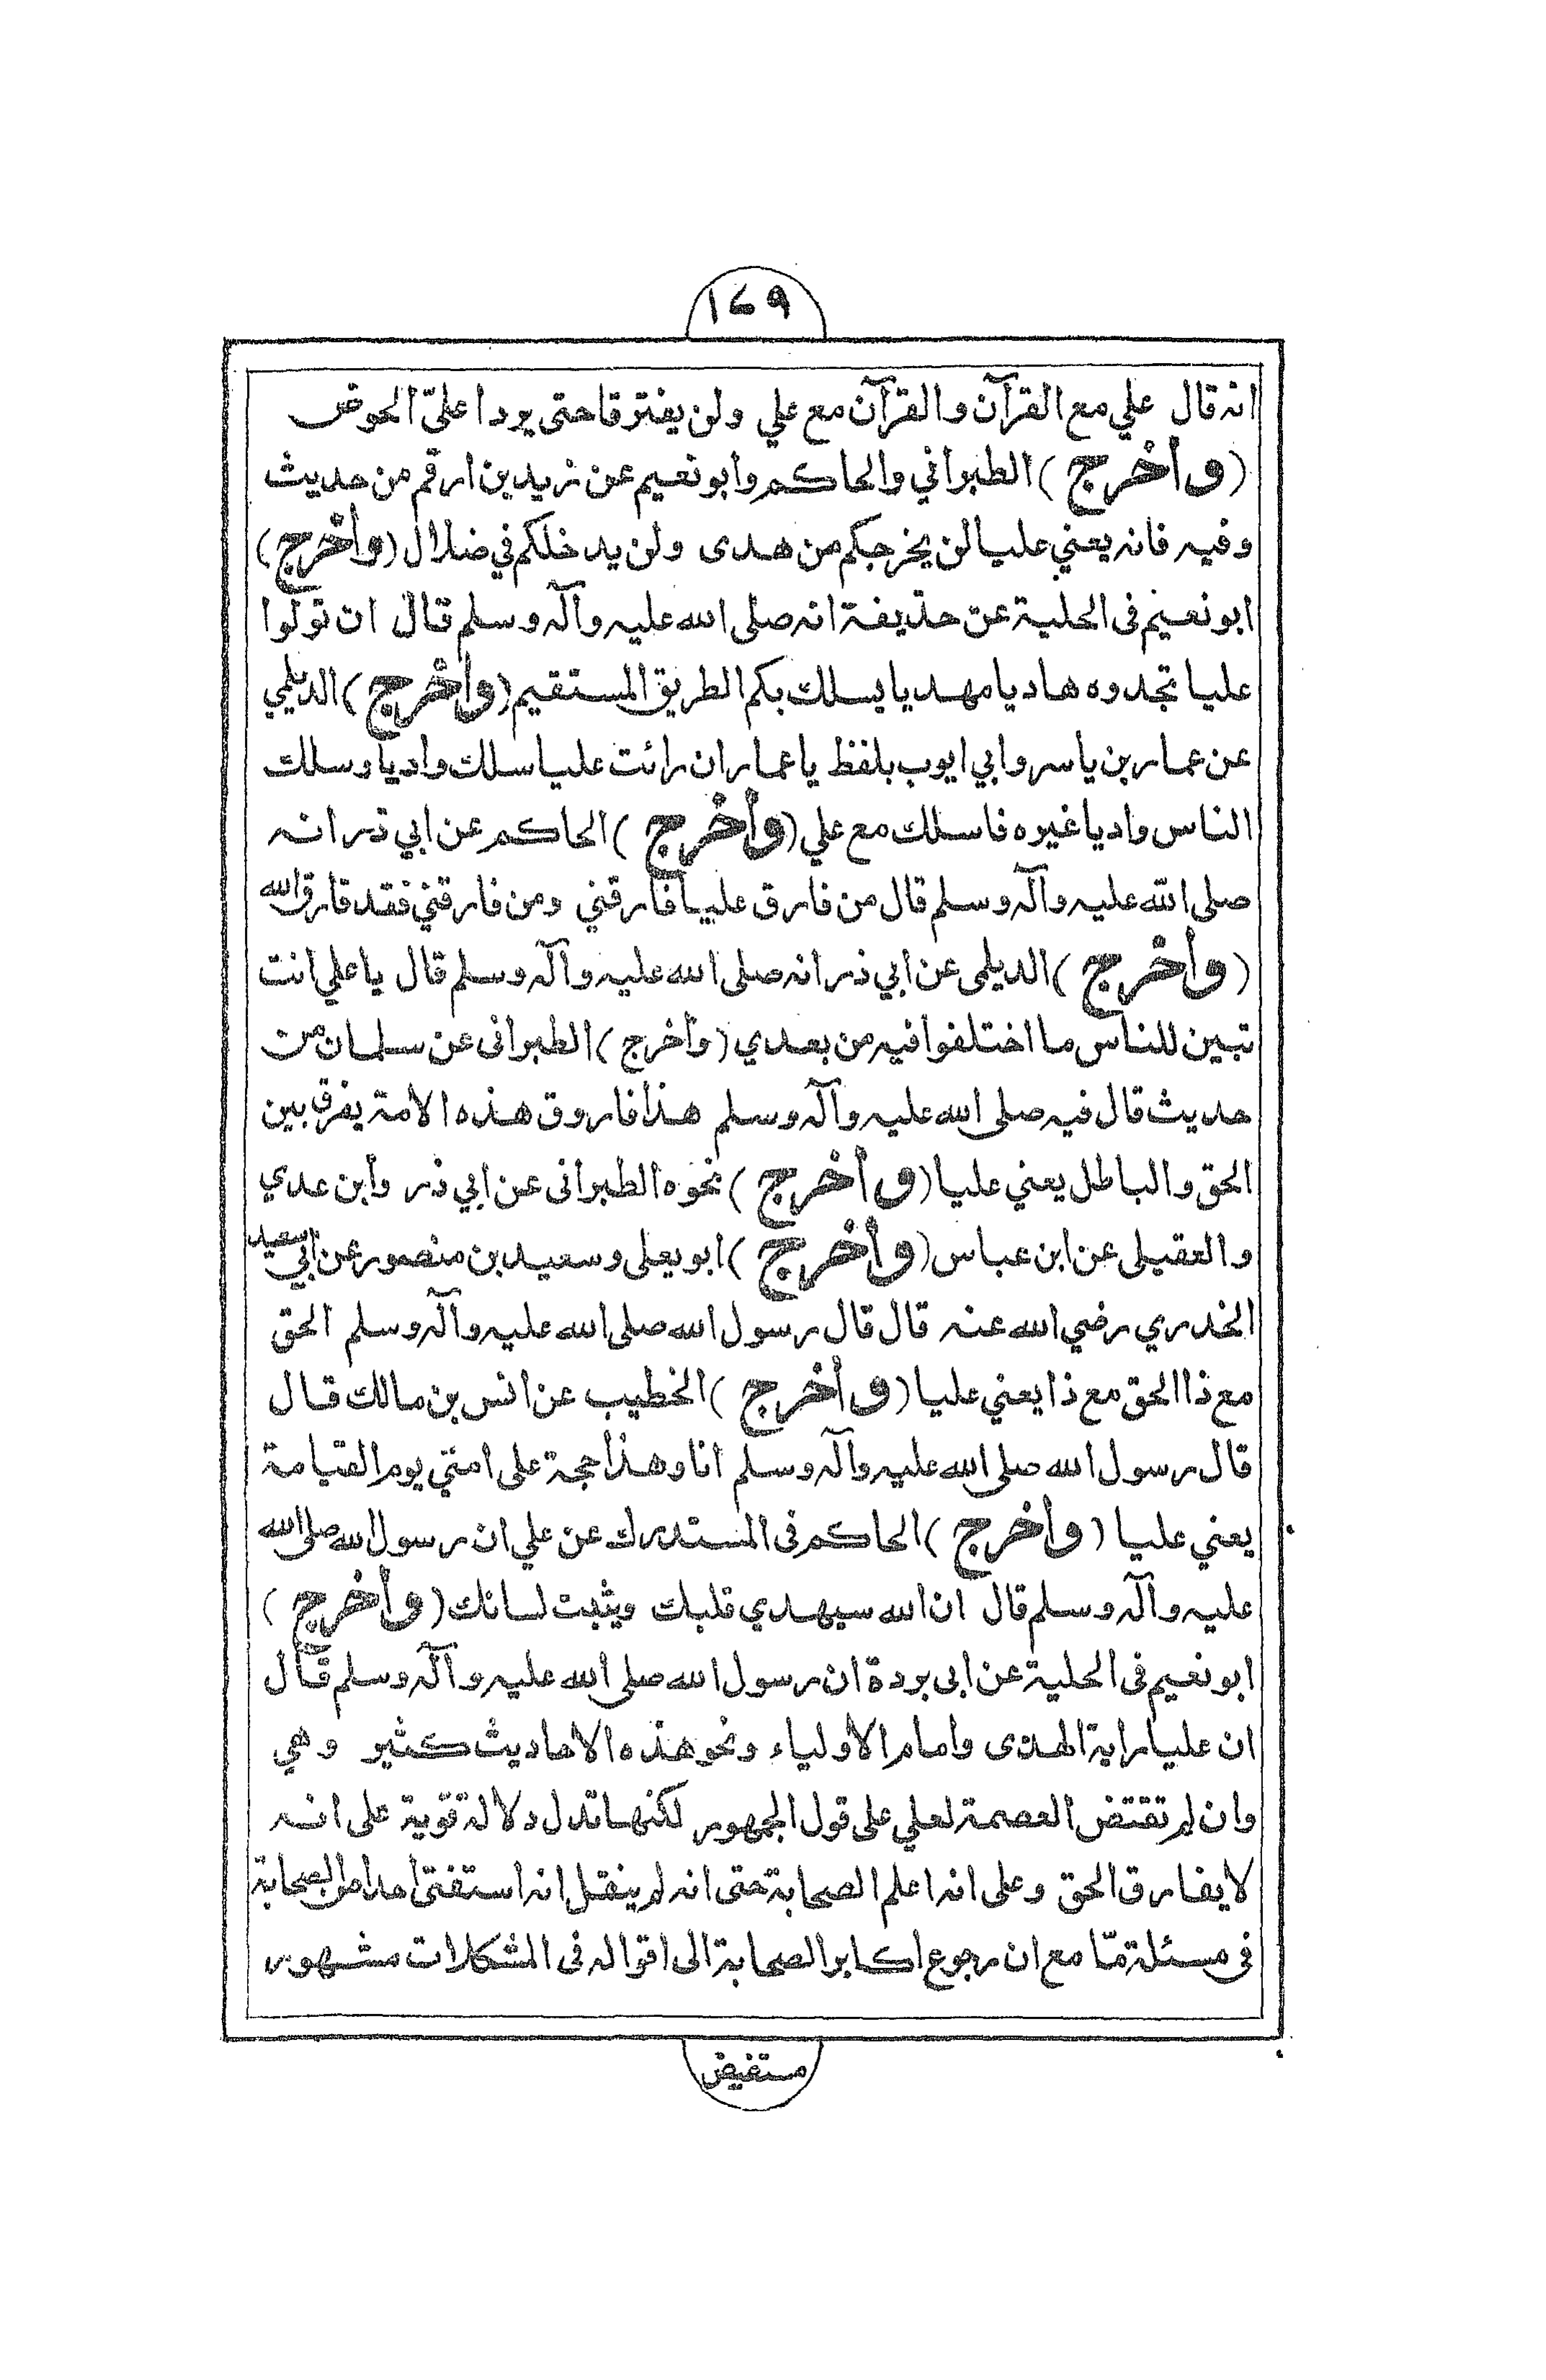 ١٤٩
انه قال علي مع القرآن والقرآن مع علي ولن يفترقا حتى يردا عليّ الحوض
(وأخرج) الطبراني والحاكم وأبو نعيم عن زيد بن ارقم من حديث
وفيه فانه يعني عليا لن يخرجكم من هدى ولن يدخلكم في ضلال (وأخرج)
ابو نعيم فى الحلية عن حذيفة انه صلى الله عليه وآله وسلم قال ان تولوا
عليا تجدوه هاديا مهديا يسلك بكم الطريق المستقيم (وأخرج) الديلمي
عن عمار بن ياسر وابي ايوب بلفظ يا عمار ان رائت عليا سلك واديا وسلك
الناس واديا غيره فاسلك مع علي (وأخرج) الحاكم عن ابي ذر انه
صلى الله عليه وآله وسلم قال من فارق عليا فارقني ومن فارقني فقد فارق الله
(وأخرج) الديلمى عن ابي ذر انه صلى الله عليه وآله وسلم قال يا علي انت
تبين للناس ما اختلفوا فيه من بعدي (وأخرج) الطبرانى عن سلمان من
حديث قال فيه صلى الله عليه وآله وسلم هذا فاروق هذه الامة يفرق بين
الحق والباطل يعني عليا (وأخرج) نحوه الطبرانى عن ابي ذر وأبن عدي
والعقيلى عن ابن عباس (وأخرج) ابو يعلى وسعيد بن منصور عن ابي سعيد
الخدري رضي الله عنه قال قال رسول الله صلى الله عليه وآله وسلم الحق
مع ذا الحق مع ذا يعني عليا (وأخرج) الخطيب عن انس بن مالك قال
قال رسول الله صلى الله عليه وآله وسلم انا وهذا حجة على امتي يوم القيامة
يعني عليا (وأخرج) الحاكم فى المستدرك عن علي ان رسول الله صلى الله
عليه وآله وسلم قال ان الله سيهدي قلبك ويثبت لسانك (وأخرج)
ابو نعيم فى الحلية عن ابى بردة ان رسول الله صلى الله عليه وآله وسلم قال
ان عليا راية الهدى وامام الأولياء ونحو هذه الاحاديث كثير وهي
وان لم تقتض العصمة لعلي على قول الجمهور لكنها تدل دلالة قوية على انه
لا يفارق الحق وعلى انه اعلم الصحابة حتى انه لم ينقل انه استفتى احدا من الصحابة
فى مسئلة مّا مع ان رجوع اكابر الصحابة الى اقواله فى المشكلات مشهور
مستفيض